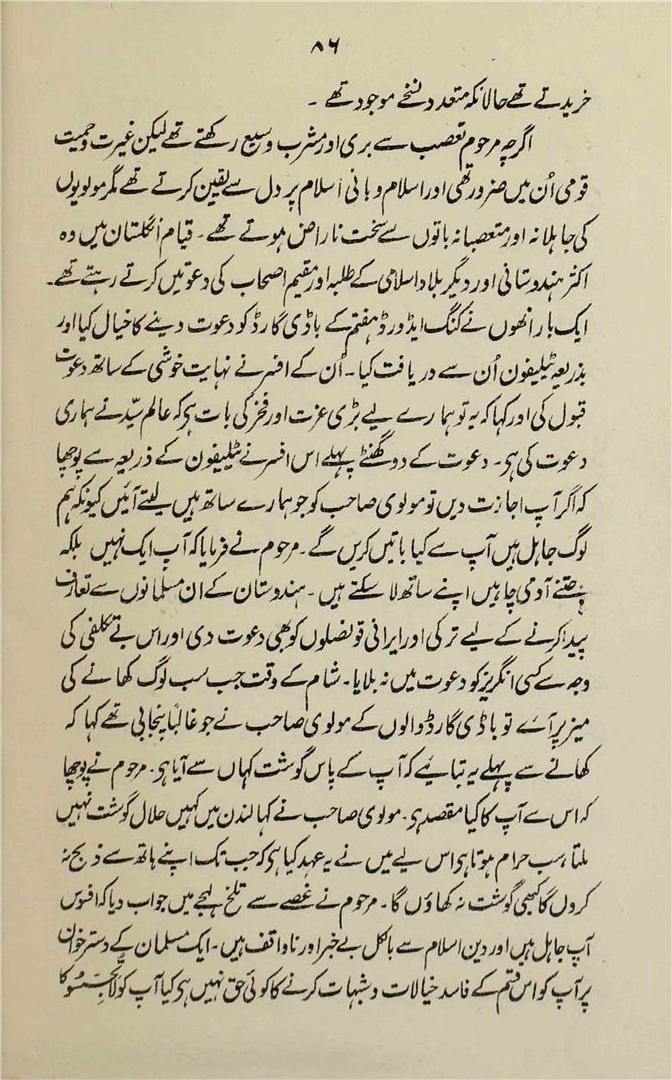 ۸۶
خریدتے تھے حالانکہ متعدد نسخے موجود تھے ۔
اگرچہ مرحوم تعصب سے بری اور مشرب وسیع رکھتے تھے لیکن غیرت و حمیت
قومی اُن میں ضرور تھی اور اسلام و بانی اسلام پر دل سے یقین کرتے تھے مگر مولویوں
کی جاہلانہ اور متعصبانہ باتوں سے سخت ناراض ہوتے تھے ۔ قیام انگلستان میں وہ
اکثر ہندوستانی اور دیگر بلاد اسلامی کے طلبہ اور مقیم اصحاب کی دعوتیں کرتے رہتے تھے۔
ایک بار انھوں نے کنگ ایڈورڈ ہفتم کے باڈی گارڈ کو دعوت دینے کا خیال کیا اور
بذریعہ ٹیلیفون اُن سے دریافت کیا ۔ اُن کے افسر نے نہایت خوشی کے ساتھ دعوت
قبول کی اور کہا کہ یہ تو ہمارے لیے بڑی عزت اور فخر کی بات ہی کہ عالم سیّد نے ہماری
دعوت کی ہی ۔ دعوت کے دو گھنٹے پہلے اس افسر نے ٹلیفون کے ذریعہ سے پوچھا
کہ اگر آپ اجازت دیں تو مولوی صاحب کو جو ہمارے ساتھ ہیں لیتے آئیں کیونکہ ہم
لوگ جاہل ہیں آپ سے کیا باتیں کریں گے ۔ مرحوم نے فرمایا کہ آپ ایک نہیں بلکہ
جتنے آدمی چاہیں اپنے ساتھ لا سکتے ہیں ۔ ہندوستان کے ان مسلمانوں سے تعارف
پیدا کرنے کے لیے ترکی اور ایرانی قونصلوں کو بھی دعوت دی اور اس بے تکلفی کی
وجہ سے کسی انگریز کو دعوت میں نہ بلایا ۔ شام کے وقت جب سب لوگ کھانے کی
میز پر آئے تو باڈی گارڈ والوں کے مولوی صاحب نے جو غالباً پنجابی تھے کہا کہ
کھانے سے پہلے یہ بتائیے کہ آپ کے پاس گوشت کہاں سے آیا ہی ۔ مرحوم نے پوچھا
کہ اس سے آپ کا کیا مقصد ہی ۔ مولوی صاحب نے کہا لندن میں کہیں حلال گوشت نہیں
ملتا ، سب حرام ہوتا ہی اس لیے میں نے یہ عہد کیا ہی کہ جب تک اپنے ہاتھ سے ذبح نہ
کروں گا کبھی گوشت نہ کھاؤں گا ۔ مرحوم نے غصے سے تلخ لہجے میں جواب دیا کہ افسوس
آپ جاہل ہیں اور دین اسلام سے بالکل بے خبر اور ناواقف ہیں ۔ ایک مسلمان کے دسترخوان
پر آپ کو اس قسم کے فاسد خیالات و شبہات کرنے کا کوئی حق نہیں ہی کیا آپ کو لَاتَجَسَّسُو کا